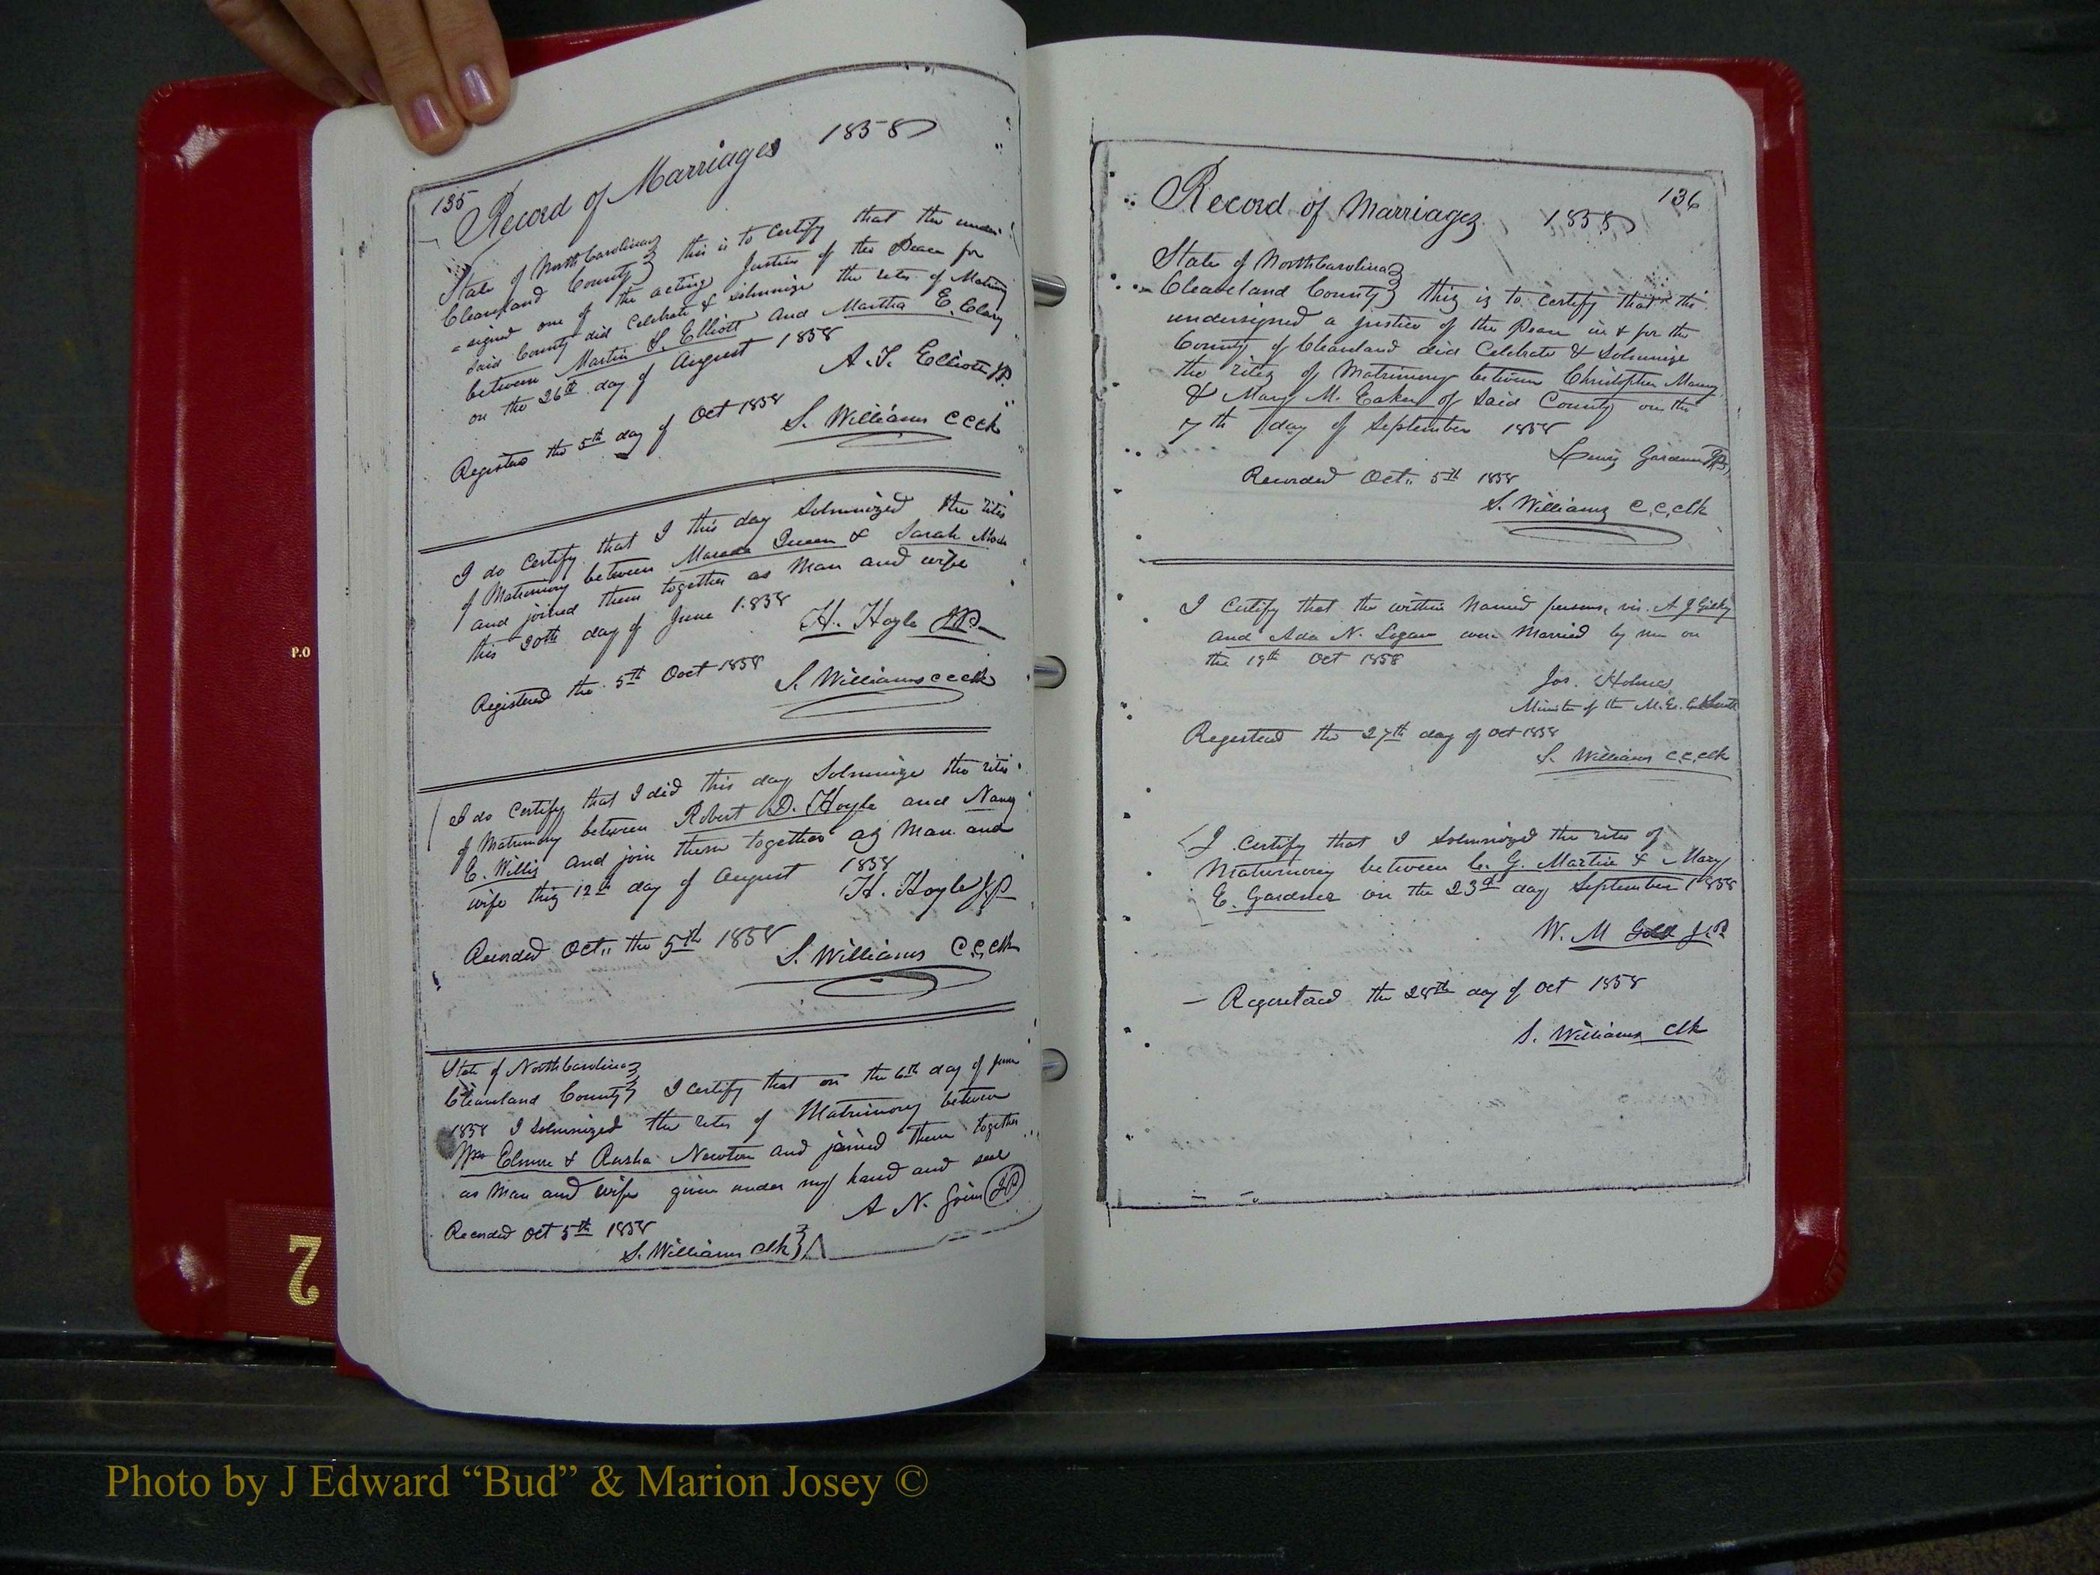 135
Record of Marriages 1858
State of North Carolina
Cleaveland County this is to certify that the under
signed one of the acting Justices of the Peace for
said County did Celebrate & solemnize the rites of Matrimony
between Martin S. Elliott and Martha E. Clary
on the 26th day of August 1858
A. S. Elliott JP.
Registered the 5th day of Oct 1858
S. Williams CCClk
I do certify that I this day Solemnized the rites
of Matrimony between Queen & Sarah
and joined them together as Man and wife
this 20th day of June 1858
H. Hoyle JP
Registered the 5th Oct 1858
S. Williams CCClk
I do certify that I did this day Solemnize the rites
of Matrimony between Robert D. Hoyle and Nancy
E. Willis and join them together as Man and
wife this 12th day of August 1858
H. Hoyle JP
Recorded Oct,, the 5th 1858
S. Williams C.C.Clk
State of North Carolina
Cleaveland County I certify that on the 6th day of June
1858 I Solemnized the rites of Matrimony between
Wm Elmore & Newton and joined them together
as Man and wife given under my hand and seal
A N. JP
Recorded Oct 5th 1858
S. Williams Clk
136
Record of Marriages 1858
State of North Carolina
Cleaveland County this is to certify that the
undersigned a Justice of the Peace in & for the
County of Cleaveland did Celebrate & Solemnize
the rites of Matrimony between Christopher
& Mary M. Eaker of Said County on the
7th day of September 1858
Lewis Gardner JP
Recorded Oct,, 5th 1858
S. Williams C.C.Clk
I Certify that the within Named persons, viz. A J Gilky
and Ada N. Logan were Married by me on
the 19th Oct 1858
Jos. Holmes
Minister of the M.E. South
Registered the 27th day of Oct 1858
S. Williams C.C.Clk
I Certify that I Solemnized the rites of
Matrimony between C. G. Martin & Mary
E. Gardner on the 23d day September 1858
W. M Gold J.P.
Registered the 28th day of Oct 1858
S. Williams Clk
P.O
2
Photo by J Edward “Bud” & Marion Josey ©